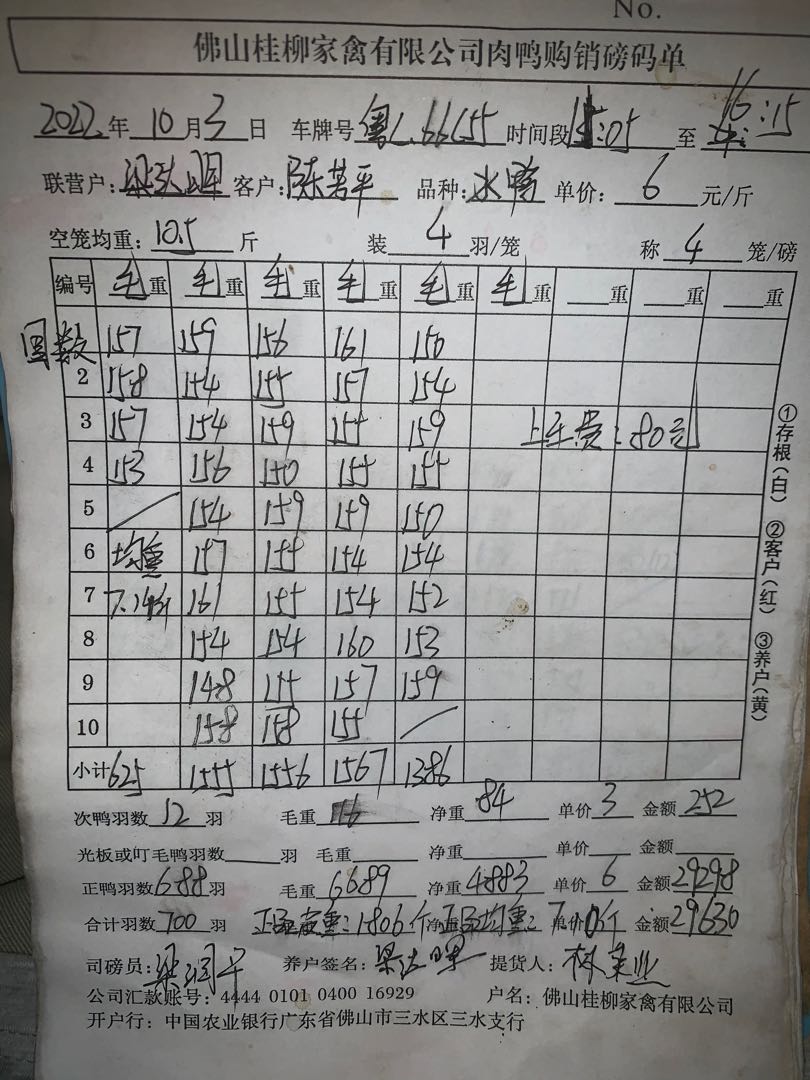 No.
佛山桂柳家禽有限公司肉鸭购销磅码单
2022年10月3日 车牌号粤L66C55时间段15:05至16:15
联营户: 客户:陈若平 品种:水鸭 单价:6元/斤
空笼均重:10.5斤 装4羽/笼 称4笼/磅
编号 毛重 毛重 毛重 毛重 毛重 毛重 重 重 重
回数 157 159 156 161 150
2 158 154 155 157 154
3 157 154 159 155 159 上车费:80元
4 153 156 150 155 155
5 / 154 159 159 150
6 均重 157 155 154 154
7 7.14斤 161 155 154 152
8 154 154 160 153
9 148 155 157 159
10 158 158 155 /
小计 625 1555 1556 1567 1386
①存根(白) ②客户(红) ③养户(黄)
次鸭羽数12羽 毛重 净重84 单价3 金额252
光板或叮毛鸭羽数 羽 毛重 净重 单价 金额
正鸭羽数688羽 毛重6689 净重4883 单价6 金额29298
合计羽数700羽 重:1806斤 净重 均重: 单价 金额29630
司磅员: 养户签名: 提货人:林
公司汇款账号:4444 0101 0400 16929 户名:佛山桂柳家禽有限公司
开户行:中国农业银行广东省佛山市三水区三水支行